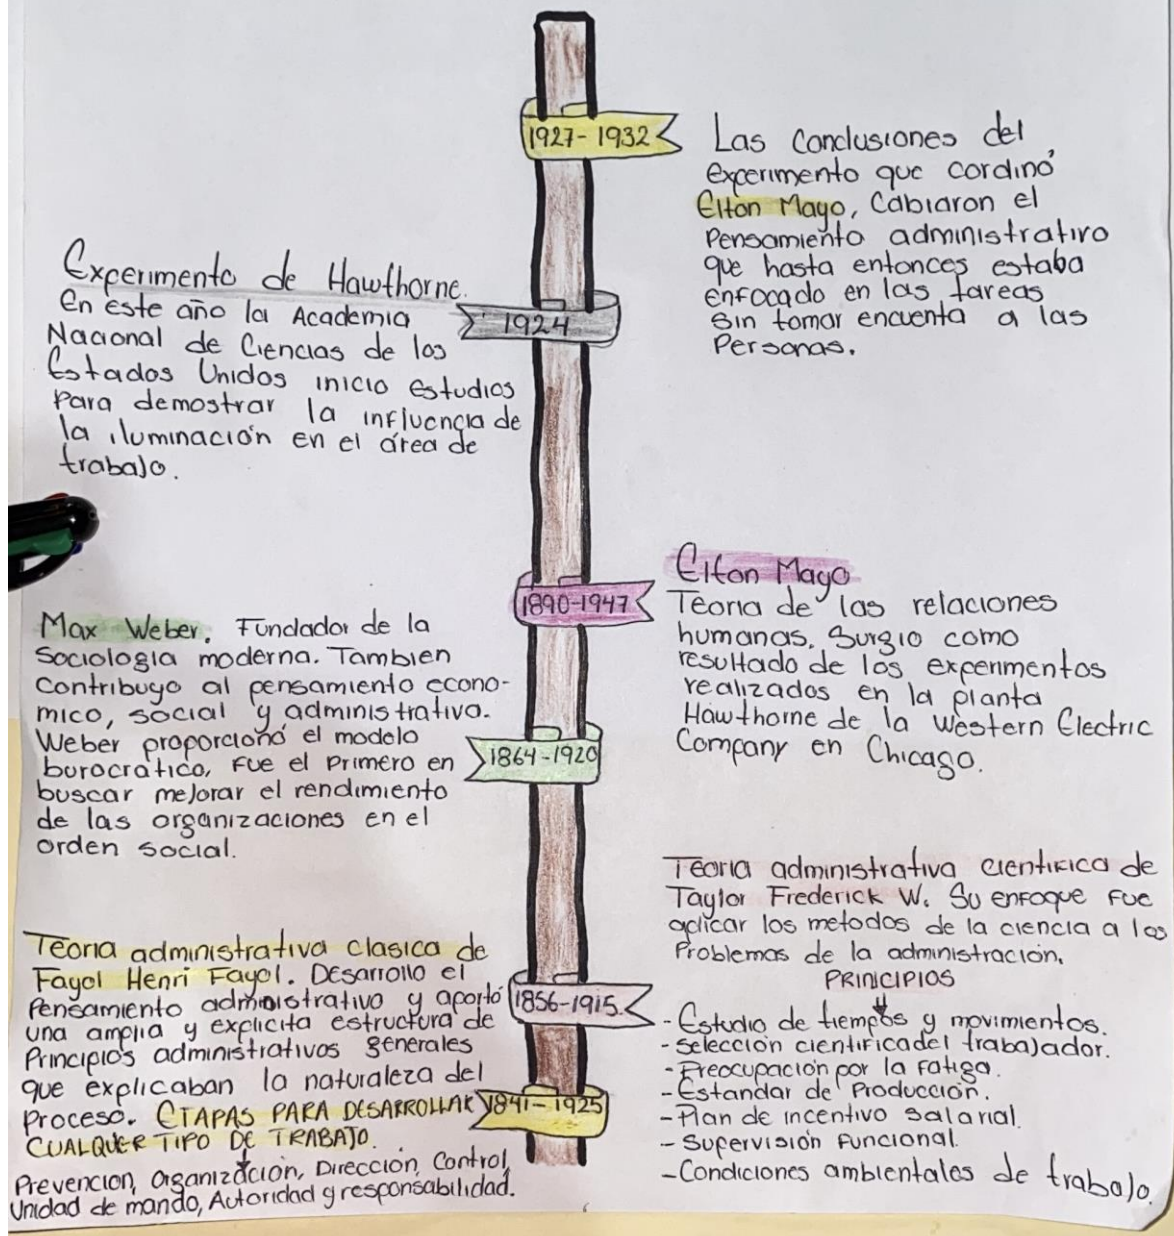 1927-1932
Las Conclusiones del
experimento que cordinó
Elton Mayo, Cabiaron el
Pensamiento administrativo
que hasta entonces estaba
enfocado en las tareas
Sin tomar encuenta a las
Personas.
Experimento de Hawthorne.
En este año la Academia
Nacional de Ciencias de los
Estados Unidos inicio estudios
Para demostrar la influencia de
la iluminación en el área de
trabajo.
1924
1890-1947
Elton Mayo
Teoria de las relaciones
humanas. Surgio como
resultado de los experimentos
realizados en la planta
Hawthorne de la Western Electric
Company en Chicago.
Max Weber. Fundador de la
Sociologia moderna. Tambien
Contribuyo al pensamiento econo-
mico, social y administrativo.
Weber proporcionó el modelo
burocrático, Fue el Primero en
buscar mejorar el rendimiento
de las organizaciones en el
orden social.
1864-1920
Teoria administrativa cientifica de
Taylor Frederick W. Su enfoque fue
aplicar los metodos de la ciencia a los
Problemas de la administración.
PRINICIPIOS
- Estudio de tiempos y movimientos.
- Selección cientifica del trabajador.
- Preocupación por la fatiga.
- Estandar de Producción.
- Plan de incentivo salarial.
- Supervisión Funcional.
- Condiciones ambientales de trabajo.
1856-1915
Teoria administrativa clasica de
Fayol Henri Fayol. Desarrollo el
Pensamiento administrativo y aportó
una amplia y explicita estructura de
Principios administrativos generales
que explicaban la naturaleza del
Proceso. ETAPAS PARA DESARROLLAR
CUALQUER TIPO DE TRABAJO.
Prevencion, Organización, Dirección, Control,
Unidad de mando, Autoridad y responsabilidad.
1841-1925